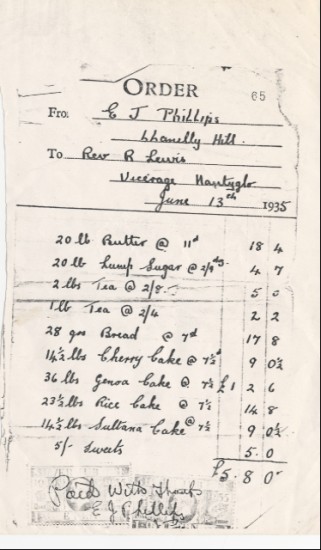 ORDER
65
From E J Phillips
Llanelly Hill.
To Rev R Lewis
Vicarage Nantyglo
June 13th 1935
20 lb Butter @ 11d 18 4
20 lb Lump Sugar @ 4 7
2 lbs Tea @ 2/8 5 0
1 lb Tea @ 2/4 2 2
28 Bread @ 7d 17 8
14½ lbs Cherry Cake @ 7½ 9 0½
36 lbs Genoa Cake @ 7½ £1 2 6
23½ lbs Rice Cake @ 7½ 14 8
14½ lbs Sultana Cake @ 7½ 9 0½
5/- Sweets 5.0
£5.8 0
Paid With Thanks
E J Phillips